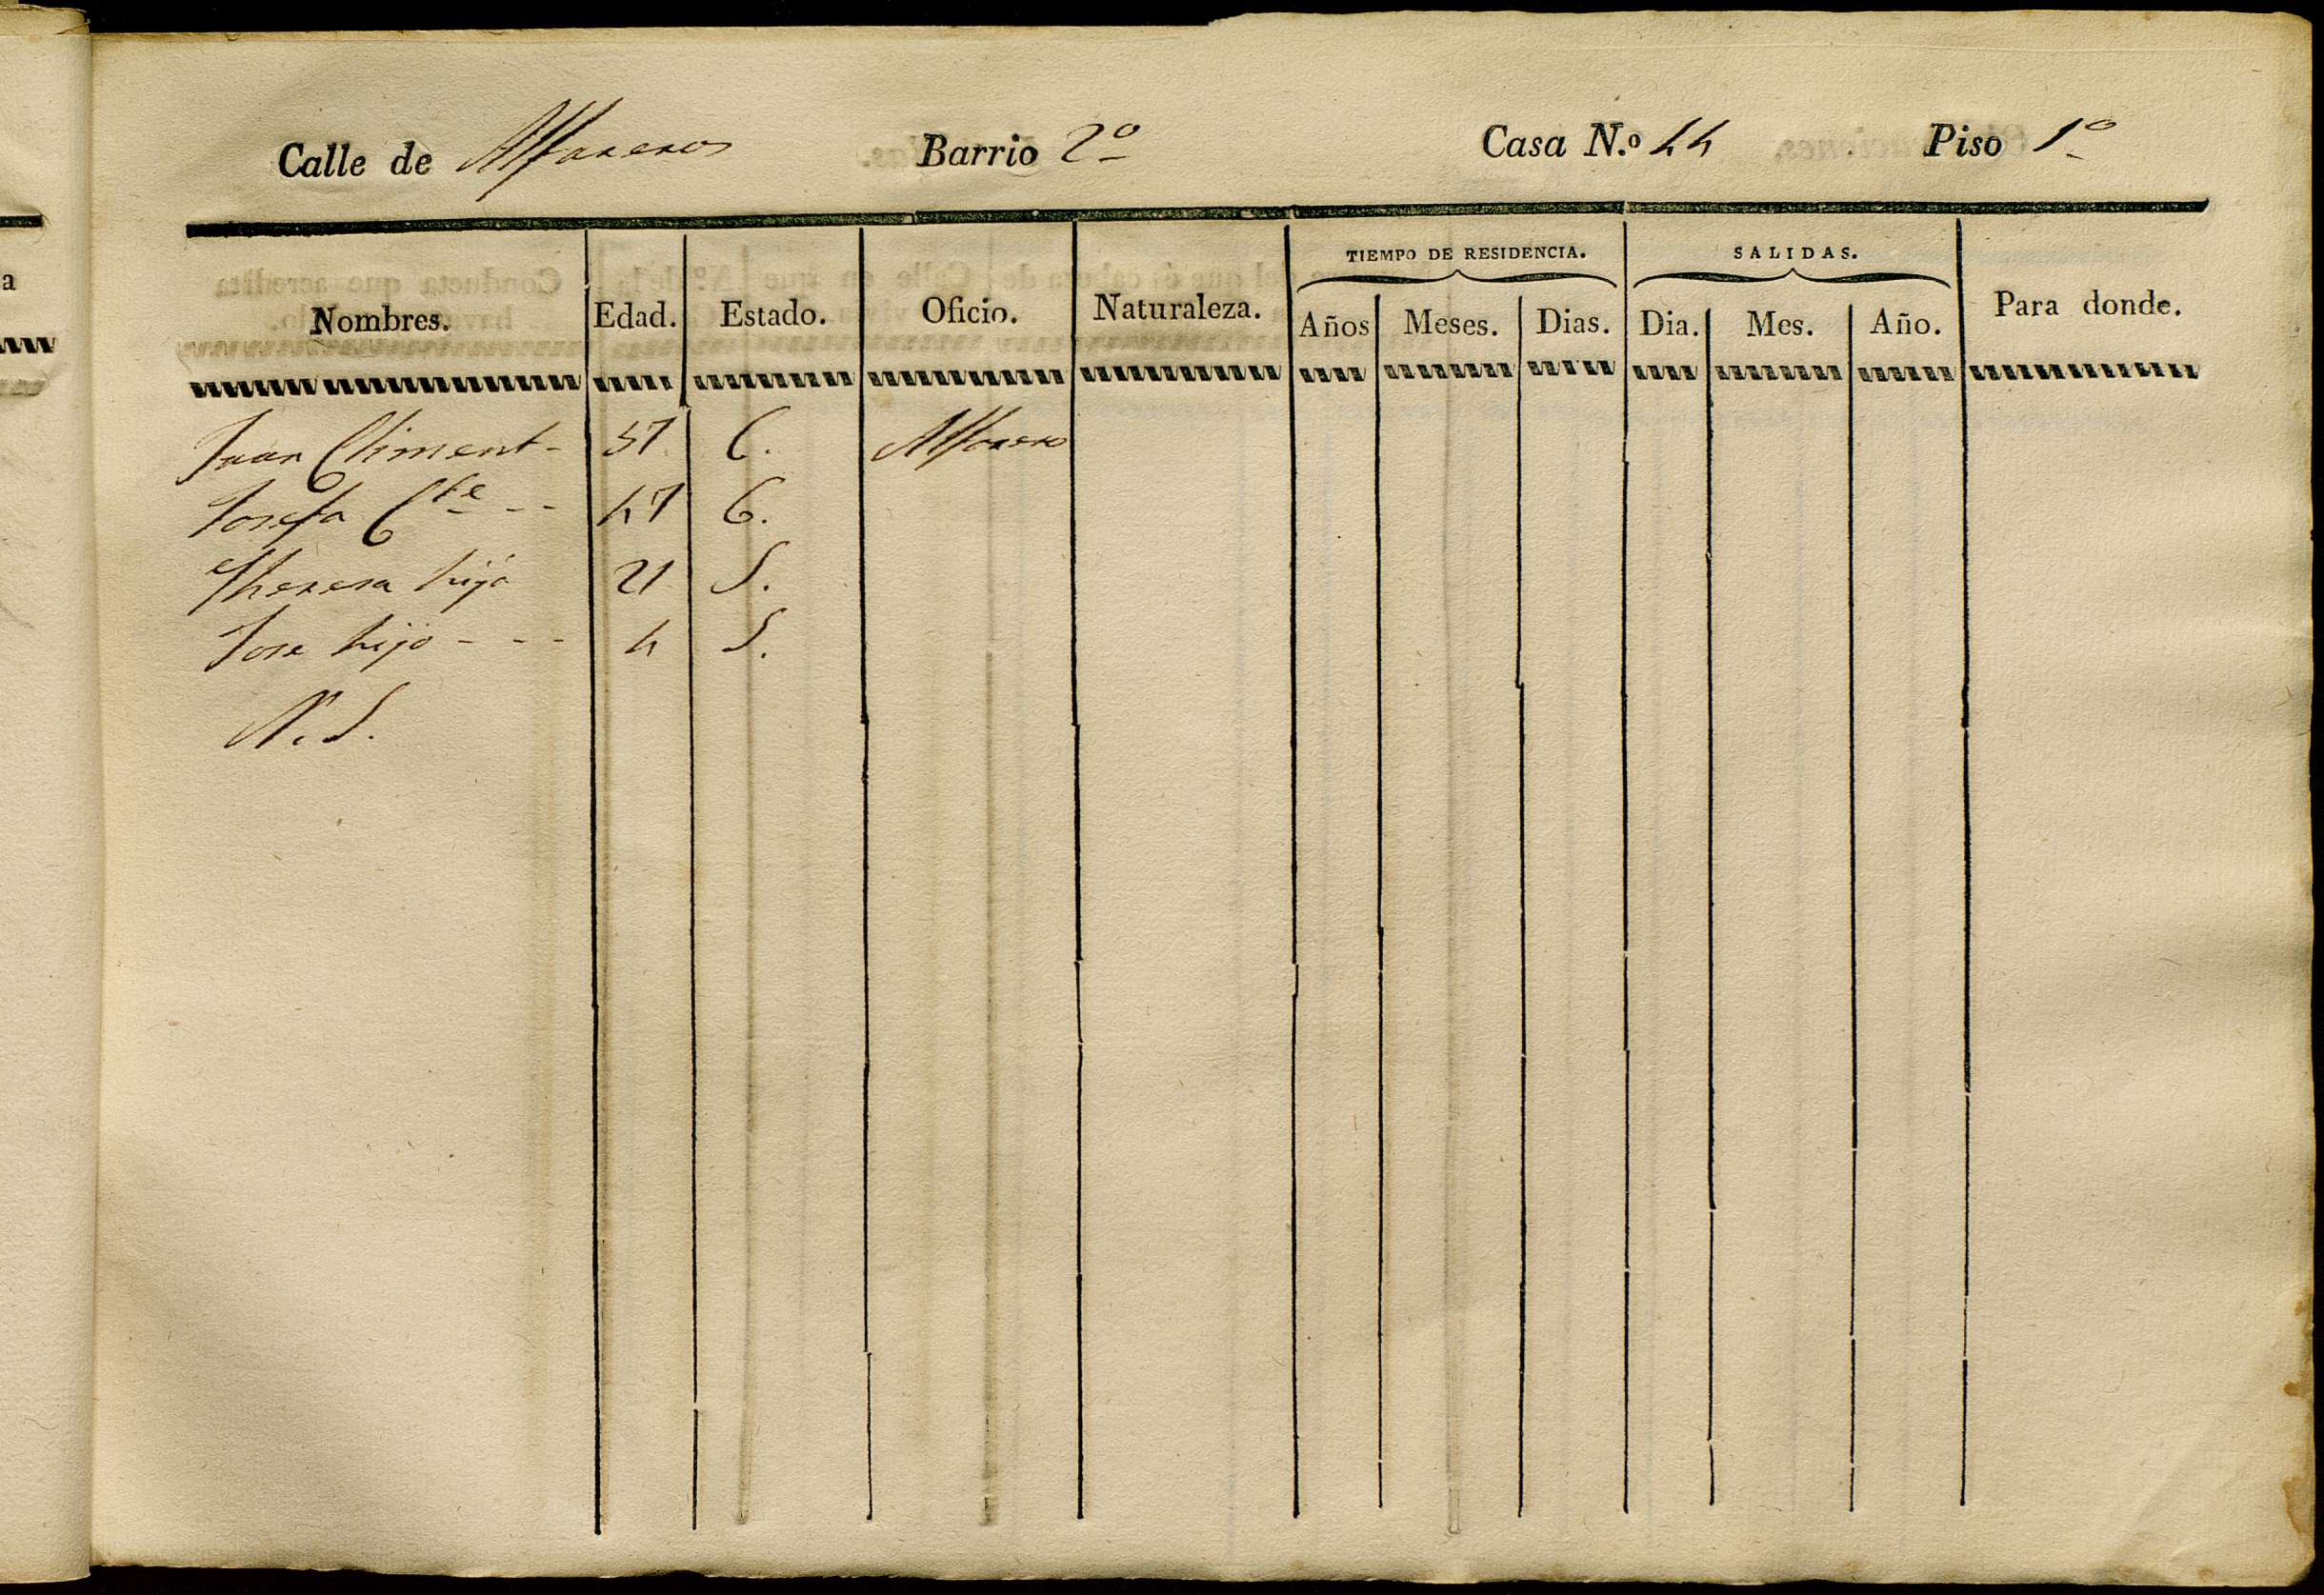 Calle de Alfareros Barrio 2º Casa N.º 44 Piso 1º
TIEMPO DE RESIDENCIA. SALIDAS.
Nombres. Edad. Estado. Oficio. Naturaleza. Años Meses. Dias. Dia. Mes. Año. Para donde.
Juan Climent - 57 C. Alfarero
Josefa Cte - - 47 C.
Theresa hija 21 S.
Jose hijo - - - 4 S.
N. S.
a